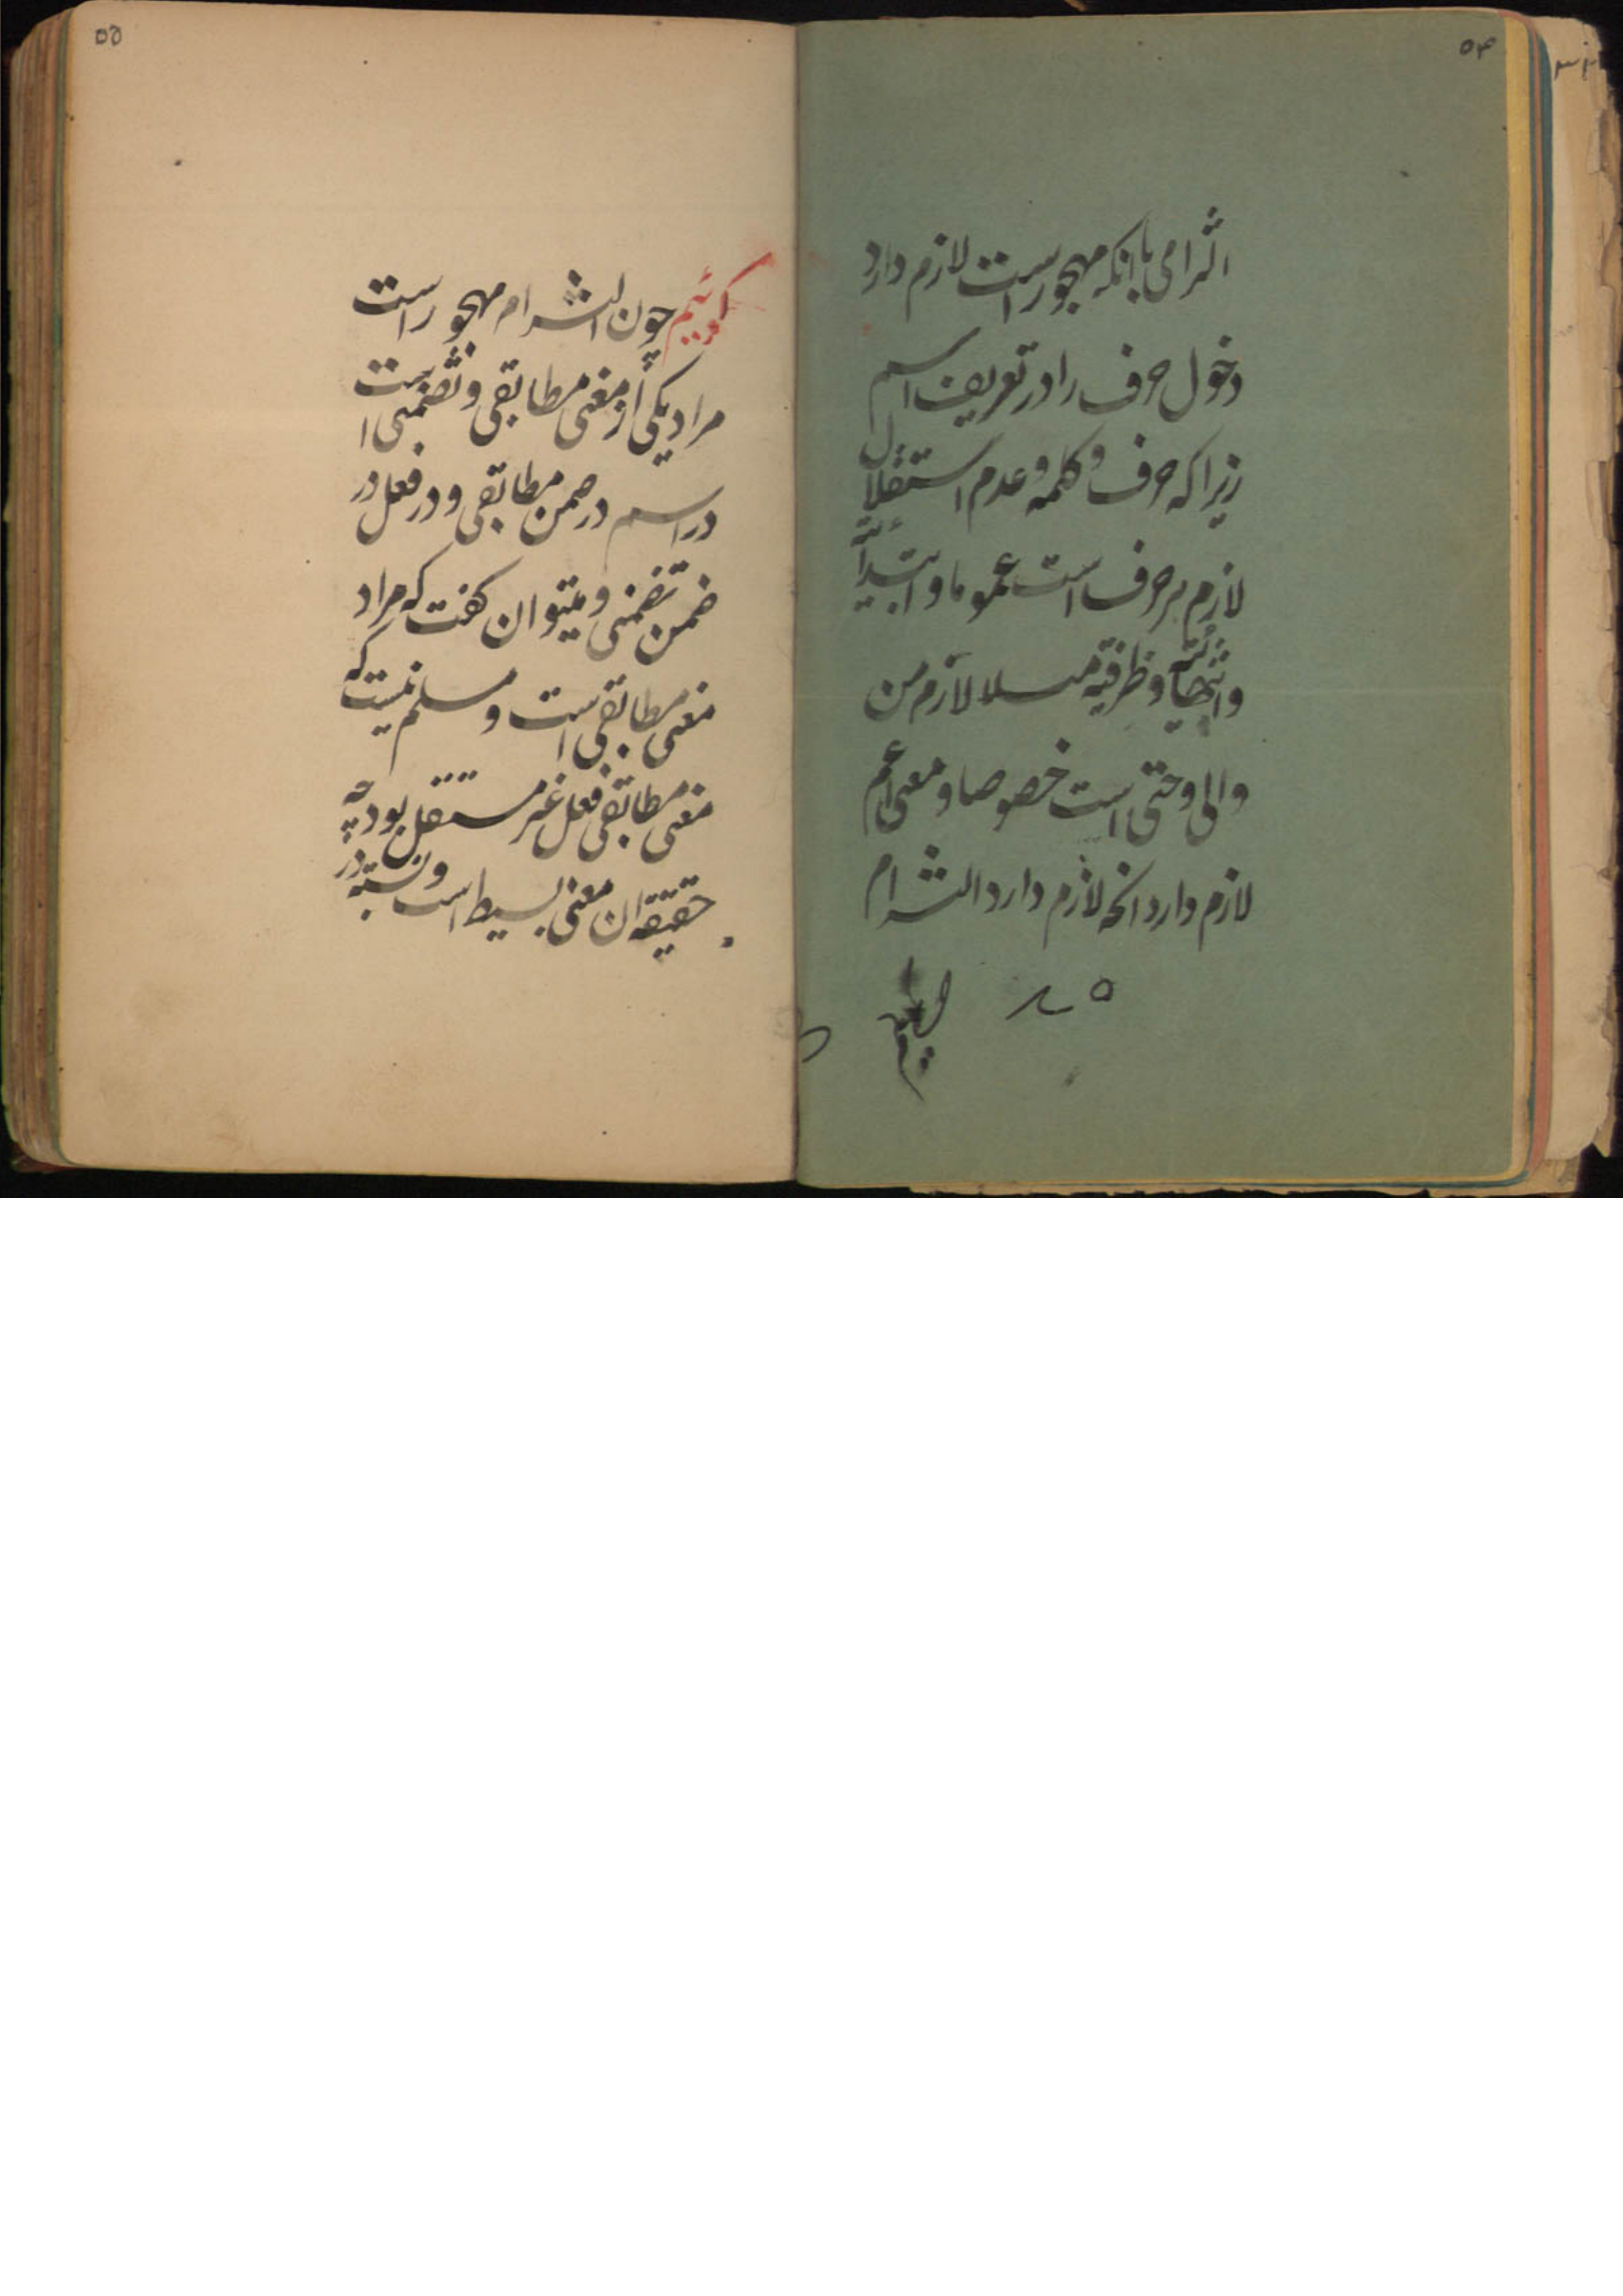 ۵۴
التزامی با انکه مهجور است لازم دارد
دخول حرف را در تعریف اسم
زیرا که حرف و کلمه و عدم استقلال
لازم هر حرف است عموما و ابتدائیه
وانتهائیه و ظرفیه مسلا لازم من
والی وحتی است خصوصا و معنی اعم
لازم دارد انچه لازم دارد التزام
۵۵
کوئیم چون التزام مهجور است
مراد یکی از معنی مطابقی و تضمنی است
در اسم در ضمن مطابقی و در فعل در
ضمن تضمنی و میتوان کفت که مراد
معنی مطابقی است و مسلم نیست که
معنی مطابقی فعل غیر مستقل بود چه
حقیقه ان معنی بسیط است و نسبته در